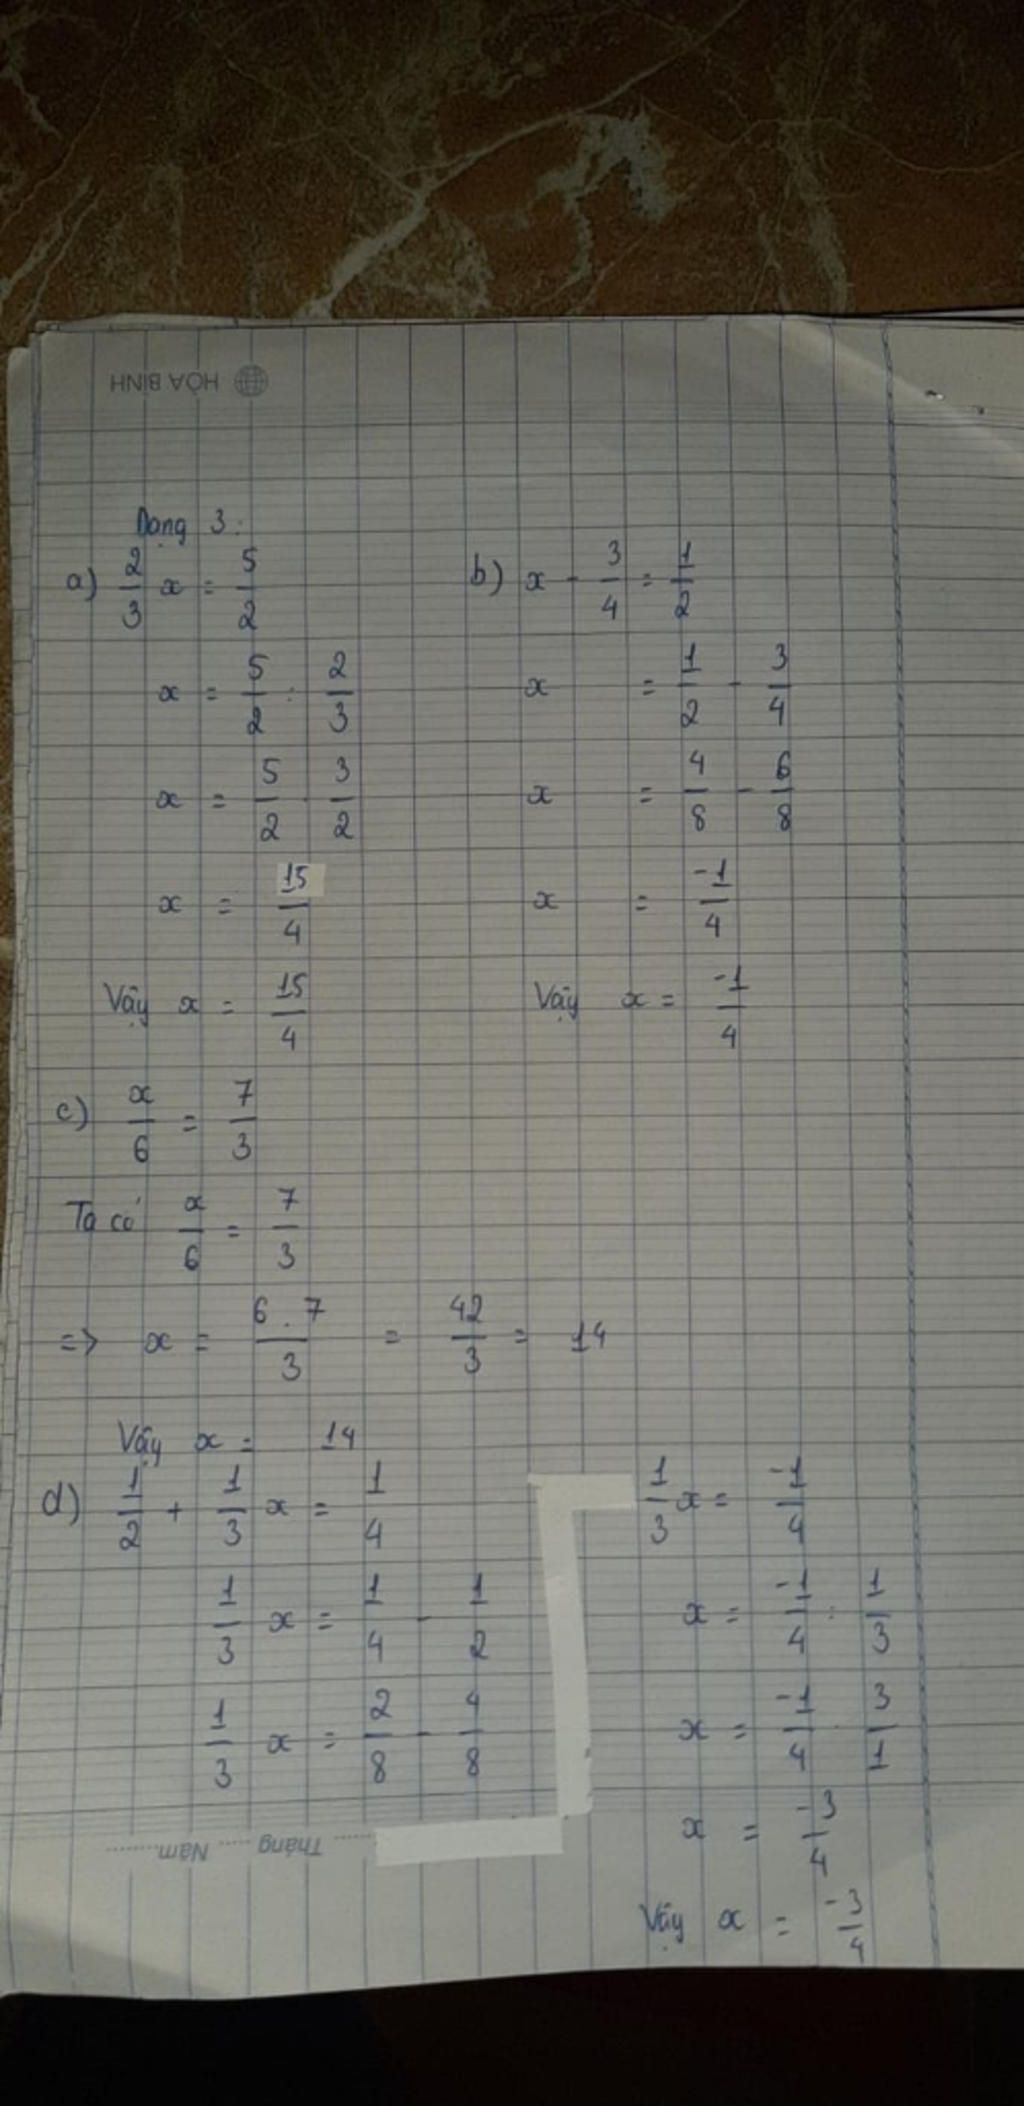 HÒA BÌNH
Dạng 3:
a) 2/3 x = 5/2
x = 5/2 : 2/3
x = 5/2 . 3/2
x = 15/4
Vậy x = 15/4
b) x - 3/4 = 1/2
x = 1/2 - 3/4
x = 4/8 - 6/8
x = -1/4
Vậy x = -1/4
c) x/6 = 7/3
Ta có x/6 = 7/3
=> x = 6.7/3 = 42/3 = 14
Vậy x = 14
d) 1/2 + 1/3 x = 1/4
1/3 x = 1/4 - 1/2
1/3 x = 2/8 - 4/8
1/3 x = -1/4
x = -1/4 : 1/3
x = -1/4 . 3/1
x = -3/4
Vậy x = -3/4
Tháng ..... Năm ........